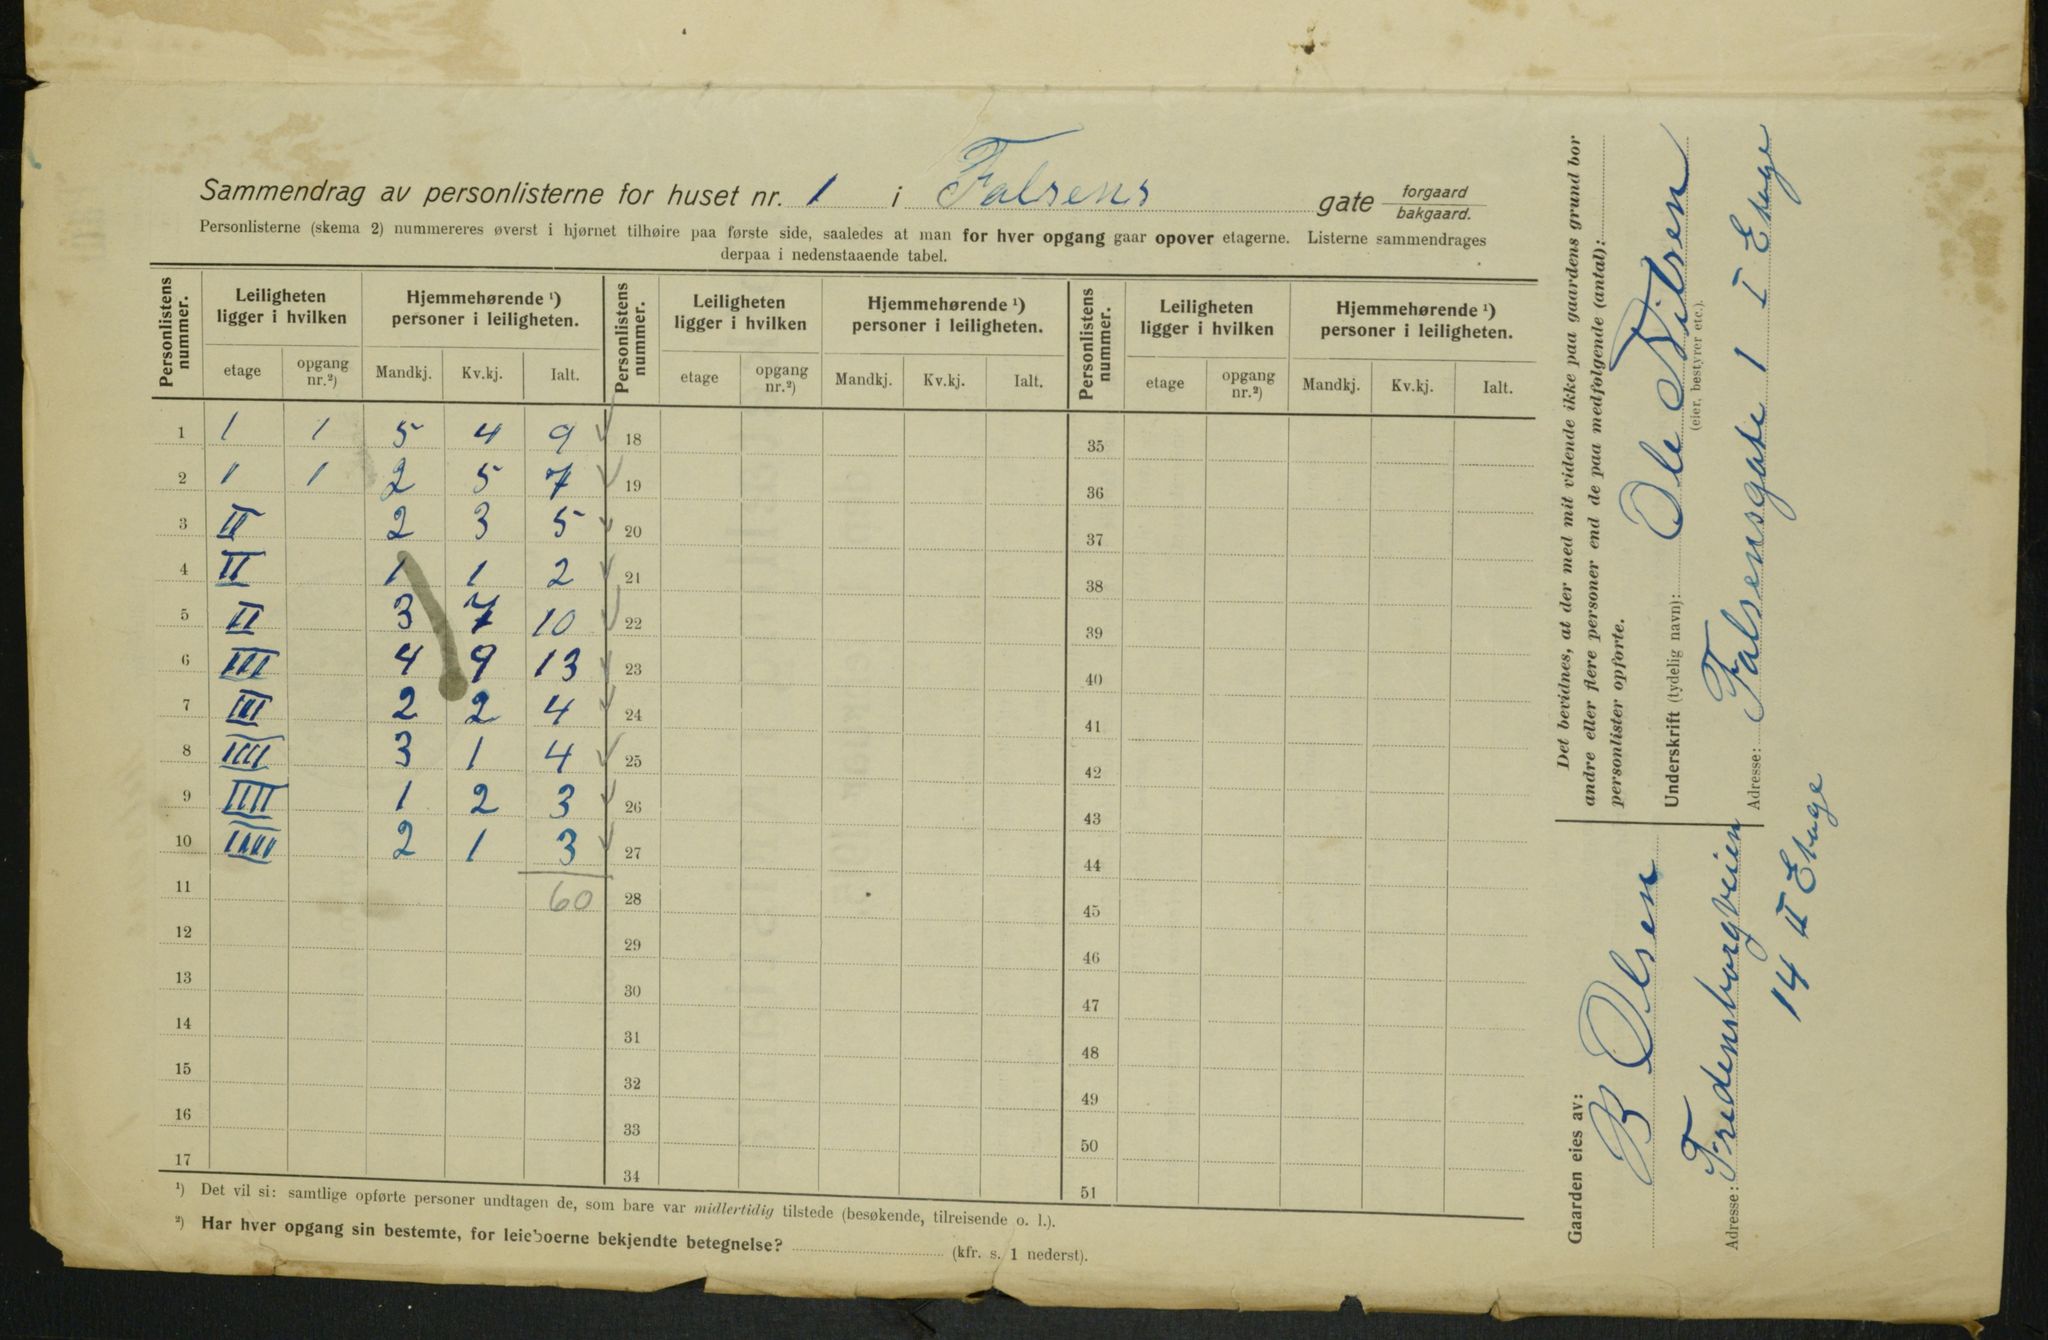 Sammendrag av personlisterne for huset nr. 1 i Falsens gate forgaard bakgaard.
Personlisterne (skema 2) nummereres øverst i hjørnet tilhøire paa første side, saaledes at man for hver opgang gaar opover etagerne. Listerne sammendrages
derpaa i nedenstaaende tabel.
Personlistens nummer. Leiligheten ligger i hvilken Hjemmehørende ¹) personer i leiligheten. Personlistens nummer. Leiligheten ligger i hvilken Hjemmehørende ¹) personer i leiligheten. Personlistens nummer. Leiligheten ligger i hvilken Hjemmehørende ¹) personer i leiligheten.
etage opgang nr.²) Mandkj. Kv.kj. Ialt. etage opgang nr.²) Mandkj. Kv.kj. Ialt. etage opgang nr.²) Mandkj. Kv.kj. Ialt.
1 1 1 5 4 9 ✓ 18 35
2 1 1 2 5 7 ✓ 19 36
3 II 2 3 5 ✓ 20 37
4 II 1 1 2 ✓ 21 38
5 II 3 7 10 ✓ 22 39
6 III 4 9 13 ✓ 23 40
7 III 2 2 4 ✓ 24 41
8 IIII 3 1 4 ✓ 25 42
9 IIII 1 2 3 ✓ 26 43
10 IIII 2 1 3 ✓ 27 44
11 60 28 45
12 29 46
13 30 47
14 31 48
15 32 49
16 33 50
17 34 51
¹) Det vil si: samtlige opførte personer undtagen de, som bare var midlertidig tilstede (besøkende, tilreisende o. l.).
²) Har hver opgang sin bestemte, for leieboerne bekjendte betegnelse? (kfr. s. 1 nederst).
Det bevidnes, at der med mit vidende ikke paa gaardens grund bor
andre eller flere personer end de paa medfølgende (antal):
personlister opførte.
Underskrift (tydelig navn): Ole Nilsen
(eier, bestyrer etc.).
Adresse: Falsensgate 1 I Etage
Gaarden eies av:
B Olsen
Adresse: Fredensborgveien
14 II Etage